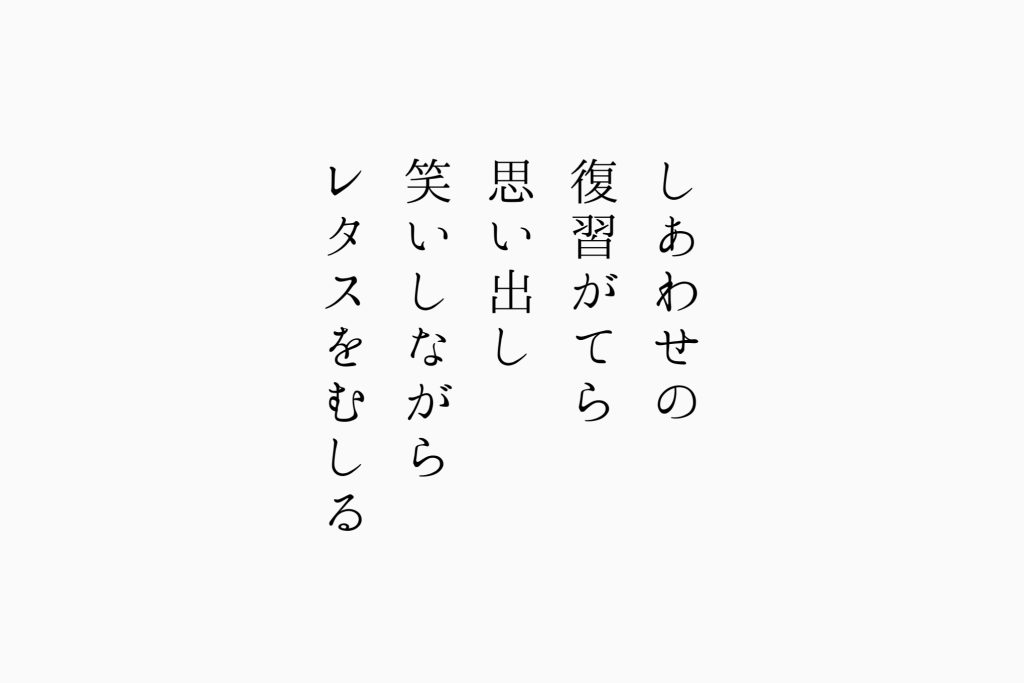 しあわせの
復習がてら
思い出し
笑いしながら
レタスをむしる